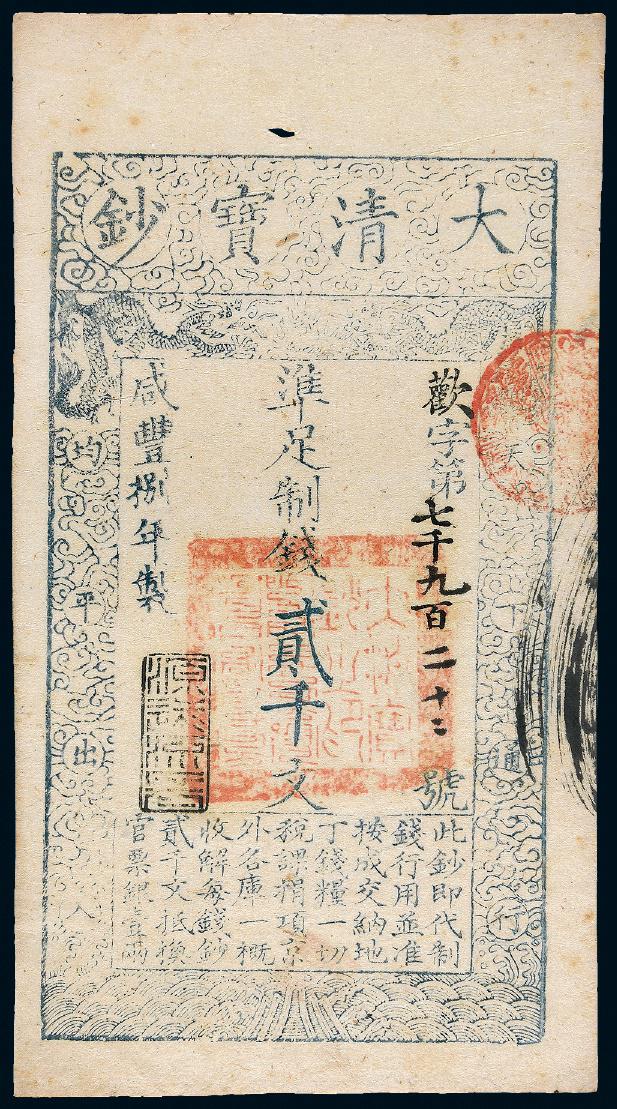 大清寶鈔
天下通行
均平出入
歡字第七千九百二十二號
準足制錢貳千文
咸豐捌年製
此鈔即代制
錢行用並准
按成交納地
丁錢糧一切
稅課捐項京
外各庫一概
收解每錢鈔
貳千文抵換
官票銀壹兩